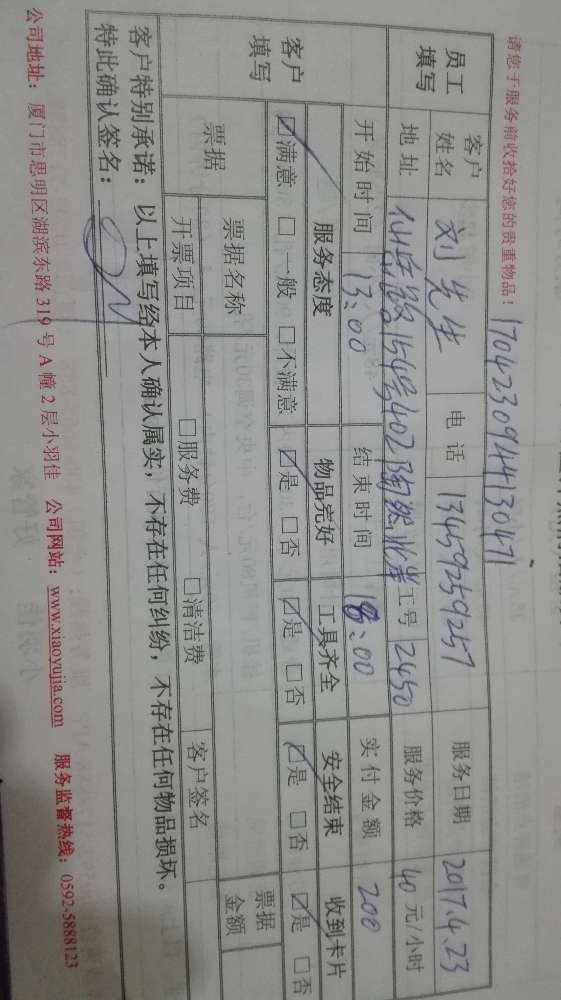 请您于服务前收拾好您的贵重物品！ 1704230944130471
员工填写 客户姓名 刘先生 电话 13459259257 服务日期 2017.4.23
地址 仙岳路154号402陶然北岸 工号 2450 服务价格 40 元/小时
开始时间 13:00 结束时间 18:00 实付金额 200
客户填写 服务态度 物品完好 工具齐全 安全结束 收到卡片
☑满意 □一般 □不满意 ☑是 □否 ☑是 □否 ☑是 □否 ☑是 □否
票据 票据名称 票据金额
开票项目 □服务费 □清洁费 客户签名
客户特别承诺：以上填写经本人确认属实，不存在任何纠纷，不存在任何物品损坏。
特此确认签名：
公司地址：厦门市思明区湖滨东路319号A幢2层小羽佳 公司网站：www.xiaoyujia.com 服务监督热线：0592-5888123